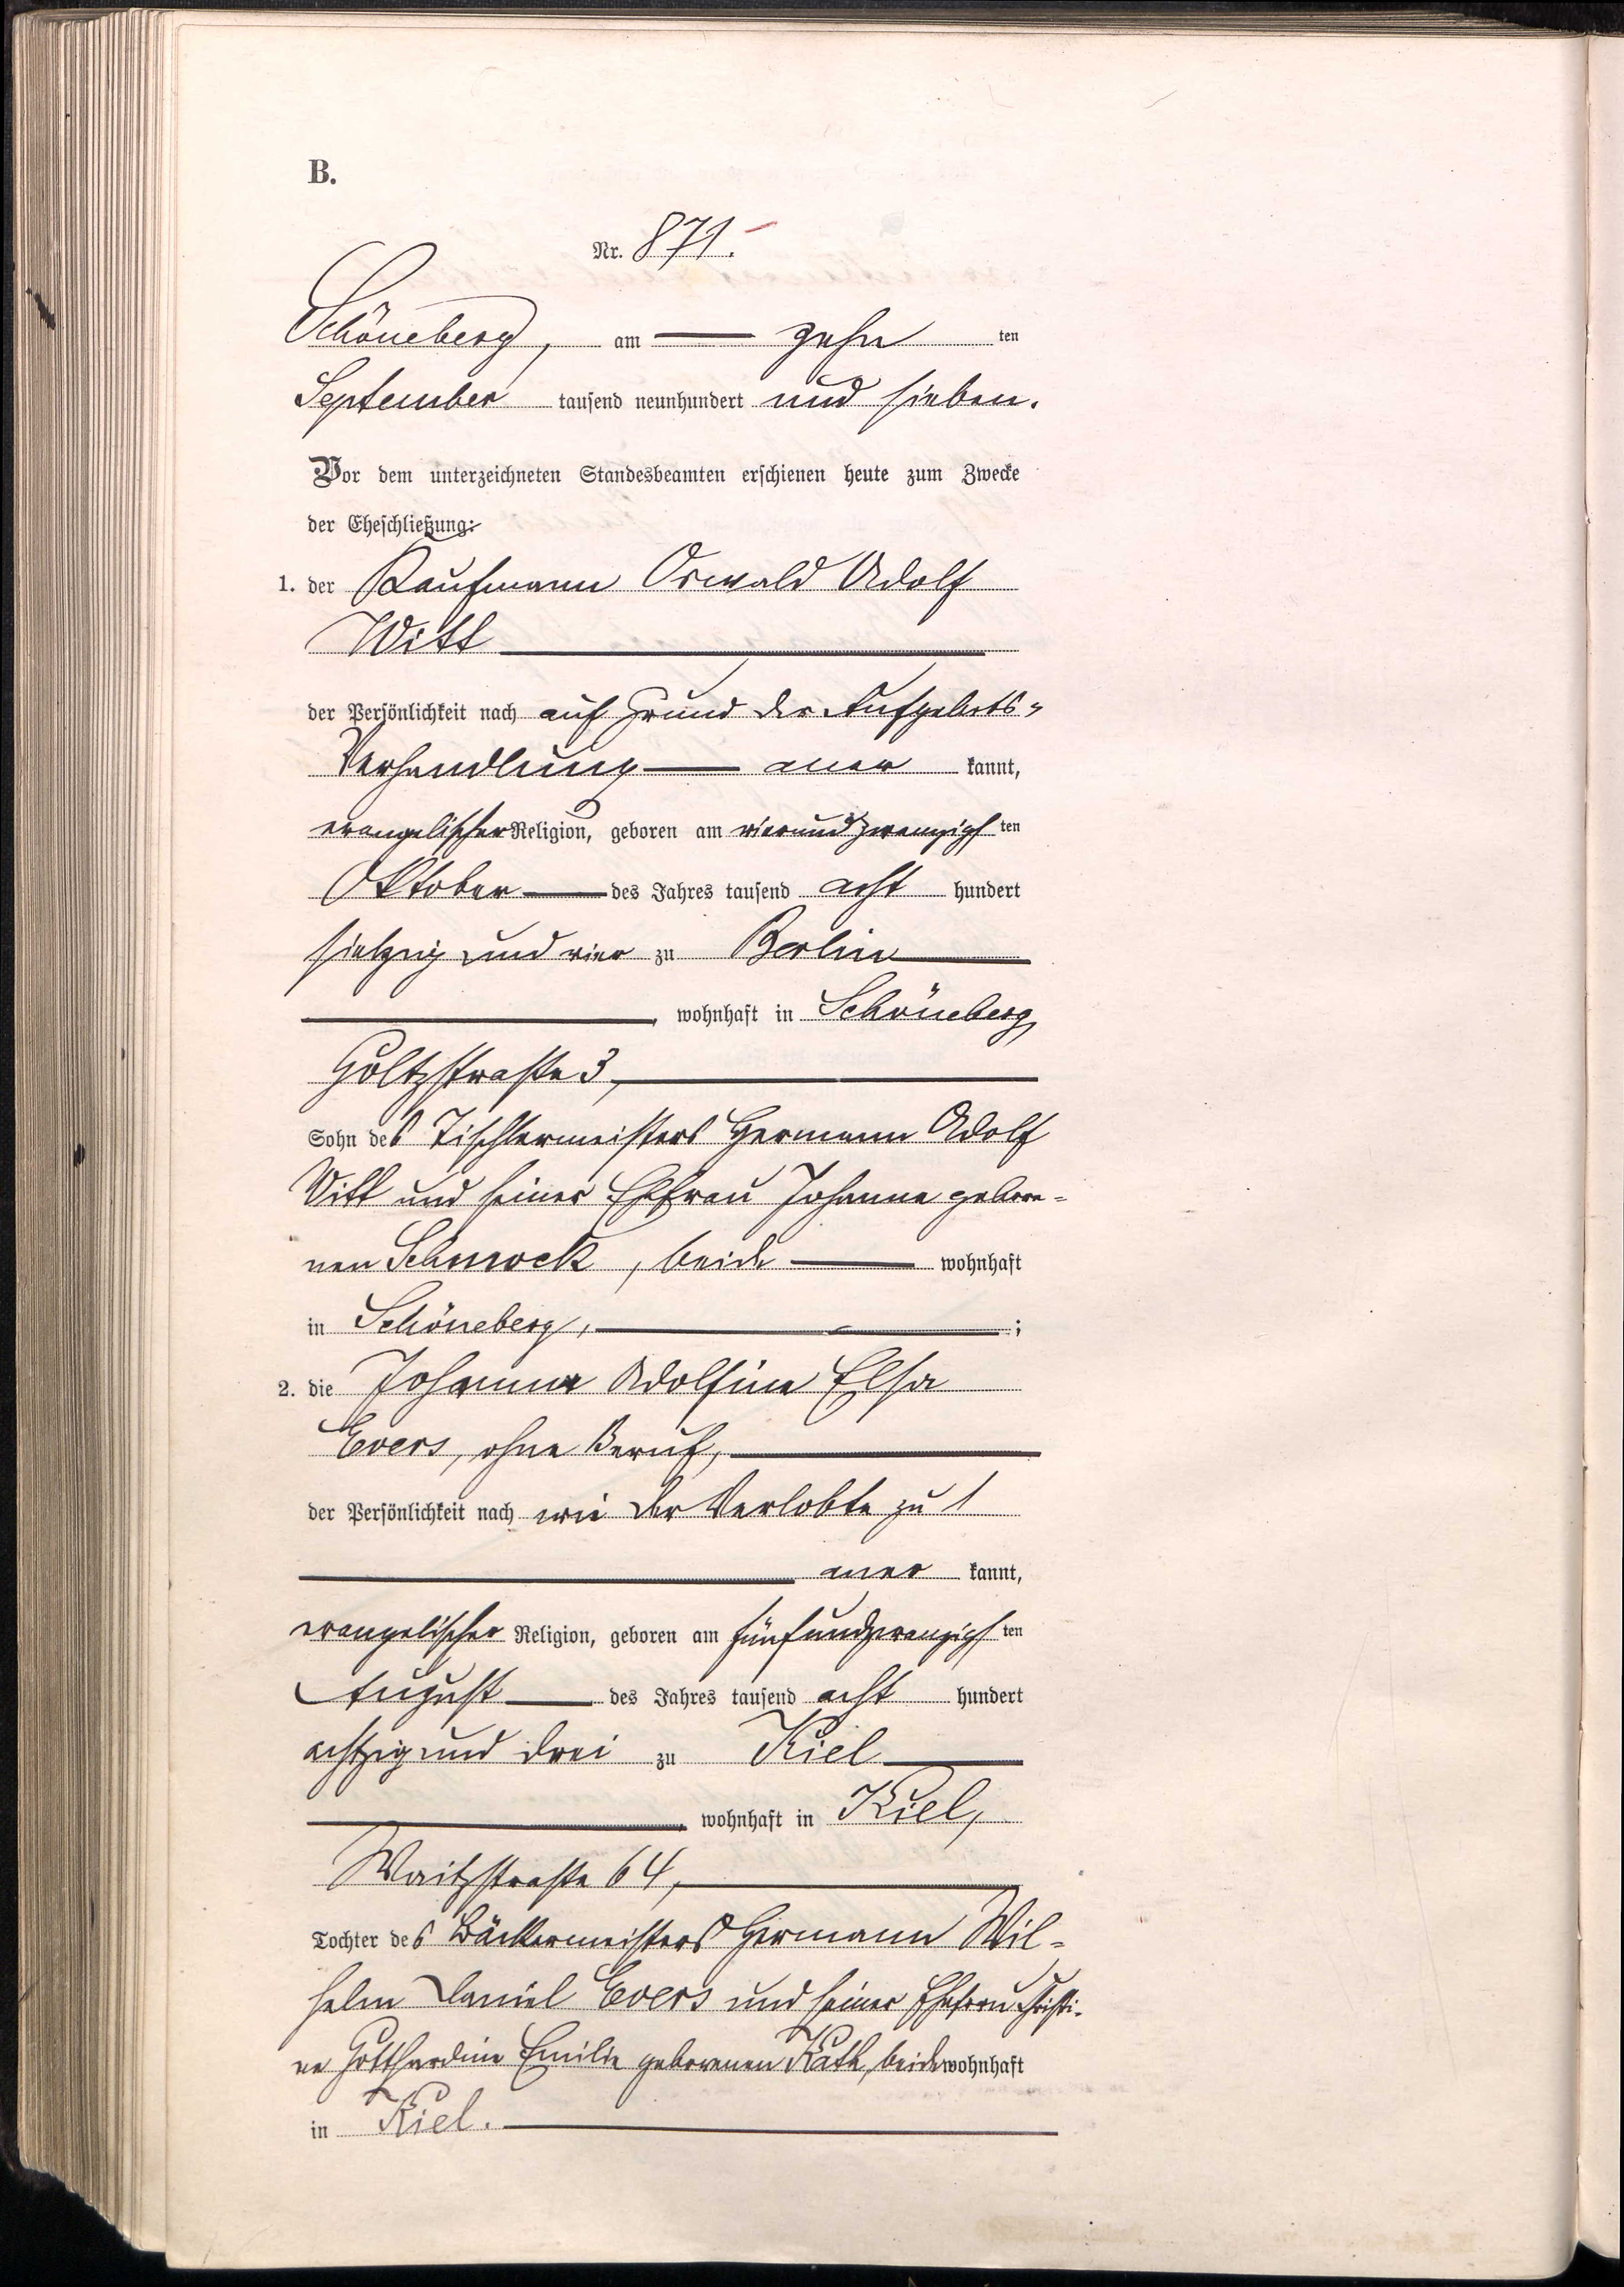 B.
Nr. 871.
Schöneberg, am zehn ten
September tausend neunhundert und sieben.
Vor dem unterzeichneten Standesbeamten erschienen heute zum Zwecke
der Eheschließung:
1. der Kaufmann Oswald Adolf
Witt
der Persönlichkeit nach auf Grund der Aufgebots=
Verhandlung aner kannt,
evangelischer Religion, geboren am vierundzwanzigs ten
Oktober des Jahres tausend acht hundert
siebzig und vier zu Berlin
, wohnhaft in Schöneberg,
Goltzstraße 3,
Sohn des Tischlermeisters Hermann Adolf
Witt und seiner Ehefrau Johanna gebore=
nen Schmock, beide wohnhaft
in Schöneberg, ;
2. die Johanna Adolfine Elsa
Evers, ohne Beruf,
der Persönlichkeit nach wie der Verlobte zu 1
aner kannt,
evangelischer Religion, geboren am fünfundzwanzigs ten
August des Jahres tausend acht hundert
achtzig und drei zu Kiel
, wohnhaft in Kiel,
Waitzstraße 64,
Tochter des Bäckermeisters Hermann Wil=
helm Daniel Evers und seiner Ehefrau Christi=
ne Gotthardine Emilie geborenen Kath, beide wohnhaft
in Kiel.